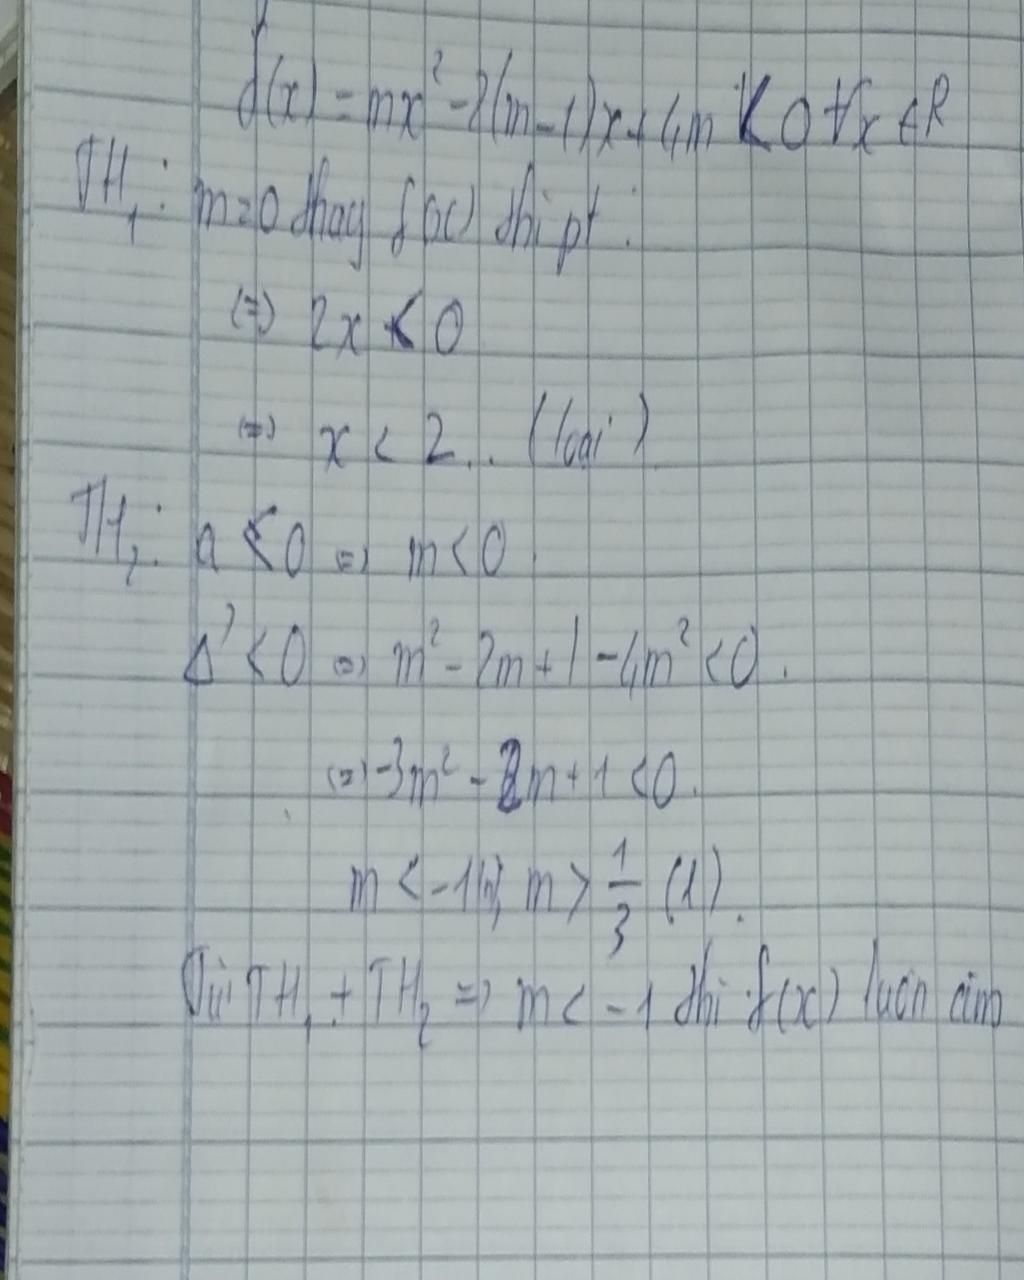 f(x) = mx² - 2(m-1)x + 4m < 0 ∀x ∈ R
TH₁: m=0 thay f(x) thì pt:
(=) 2x < 0
(=) x < 2.. (loại)
TH₂: a < 0 (=) m < 0.
Δ' < 0 (=) m² - 2m + 1 - 4m² < 0.
(=) -3m² - 2m + 1 < 0.
m < -1 (n), m > 1/3 (l).
Từ TH₁ + TH₂ => m < -1 thì f(x) luôn âm